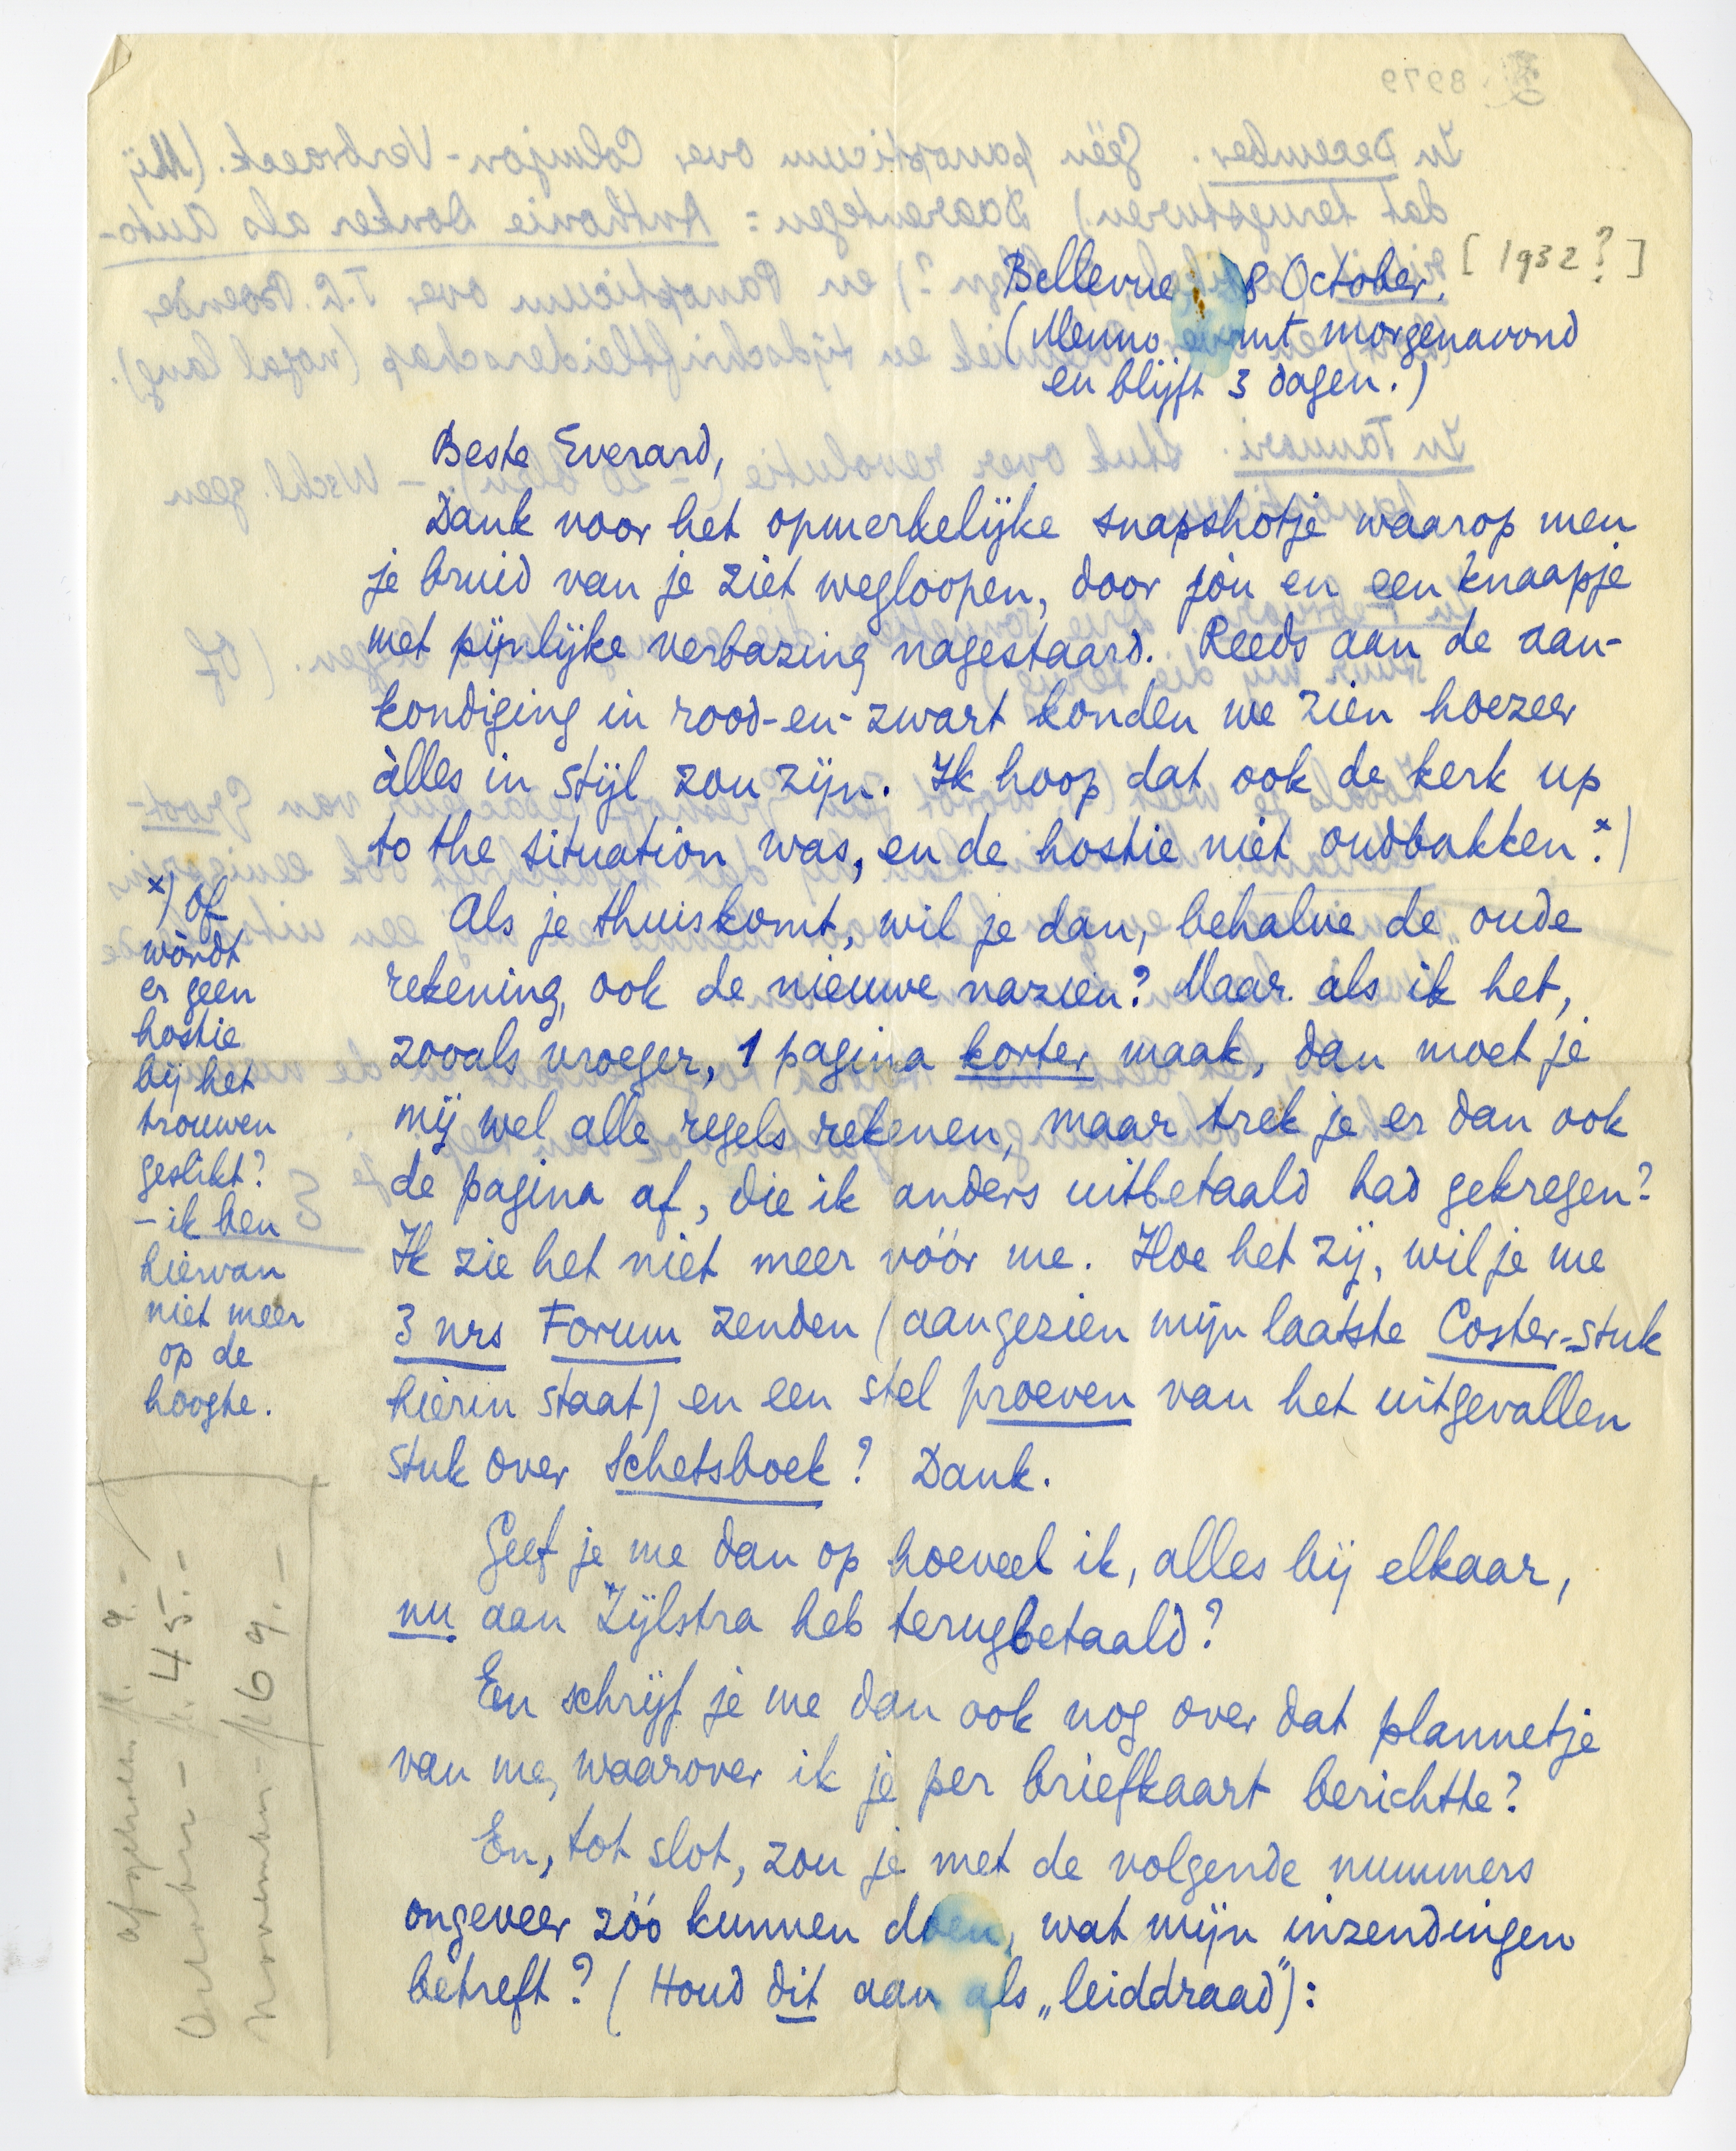 Bellevue 8 October. [1932?]
(Menno komt morgenavond
en blijft 3 dagen.)
Beste Everard,
Dank voor het opmerkelijke snapshotje waarop men
je bruid van je ziet wegloopen, door jòu en een knaapje
met pijnlijke verbazing nagestaard. Reeds aan de aan-
kondiging in rood-en-zwart konden we zien hoezeer
àlles in stijl zou zijn. Ik hoop dat ook de kerk up
to the situation was, en de hostie niet oudbakken.*)
*) Of
wòrdt
er geen
hostie
bij het
trouwen
geslikt?
– ik ben
hiervan
niet meer
op de
hoogte.
Als je thuiskomt, wil je dan, behalve de oude
rekening, ook de nieuwe nazien? Maar als ik het,
zooals vroeger, 1 pagina korter maak, dan moet je
mij wel alle regels rekenen, maar trek je er dan ook
de pagina af, die ik anders uitbetaald had gekregen?
Ik zie het niet meer vóór me. Hoe het zij, wil je me
3 nrs Forum zenden (aangezien mijn laatste Coster-stuk
hierin staat) en een stel proeven van het uitgevallen
stuk over Schetsboek? Dank.
Geef je me dan op hoeveel ik, alles bij elkaar,
nu aan Zijlstra heb terugbetaald?
En schrijf je me dan ook nog over dat plannetje
van me, waarover ik je per briefkaart berichtte?
En, tot slot, zou je met de volgende nummers
ongeveer zóó kunnen doen, wat mijn inzendingen
betreft? (Houd dit aan als „leiddraad”):
afgeholen fl. 9.-
October – fl. 45.–
November – fl 69.–
8979
In December. Géén panopticum over Colmjon-Verbraeck. (Mij
dat terugsturen.) Daarentegen: Anthonie Donker als Auto-
en Panopticum over J.C. Bloem
en tijdschriftleiderschap (nogal lang).
In Januari. Stuk over revolutie – Wschl. geen